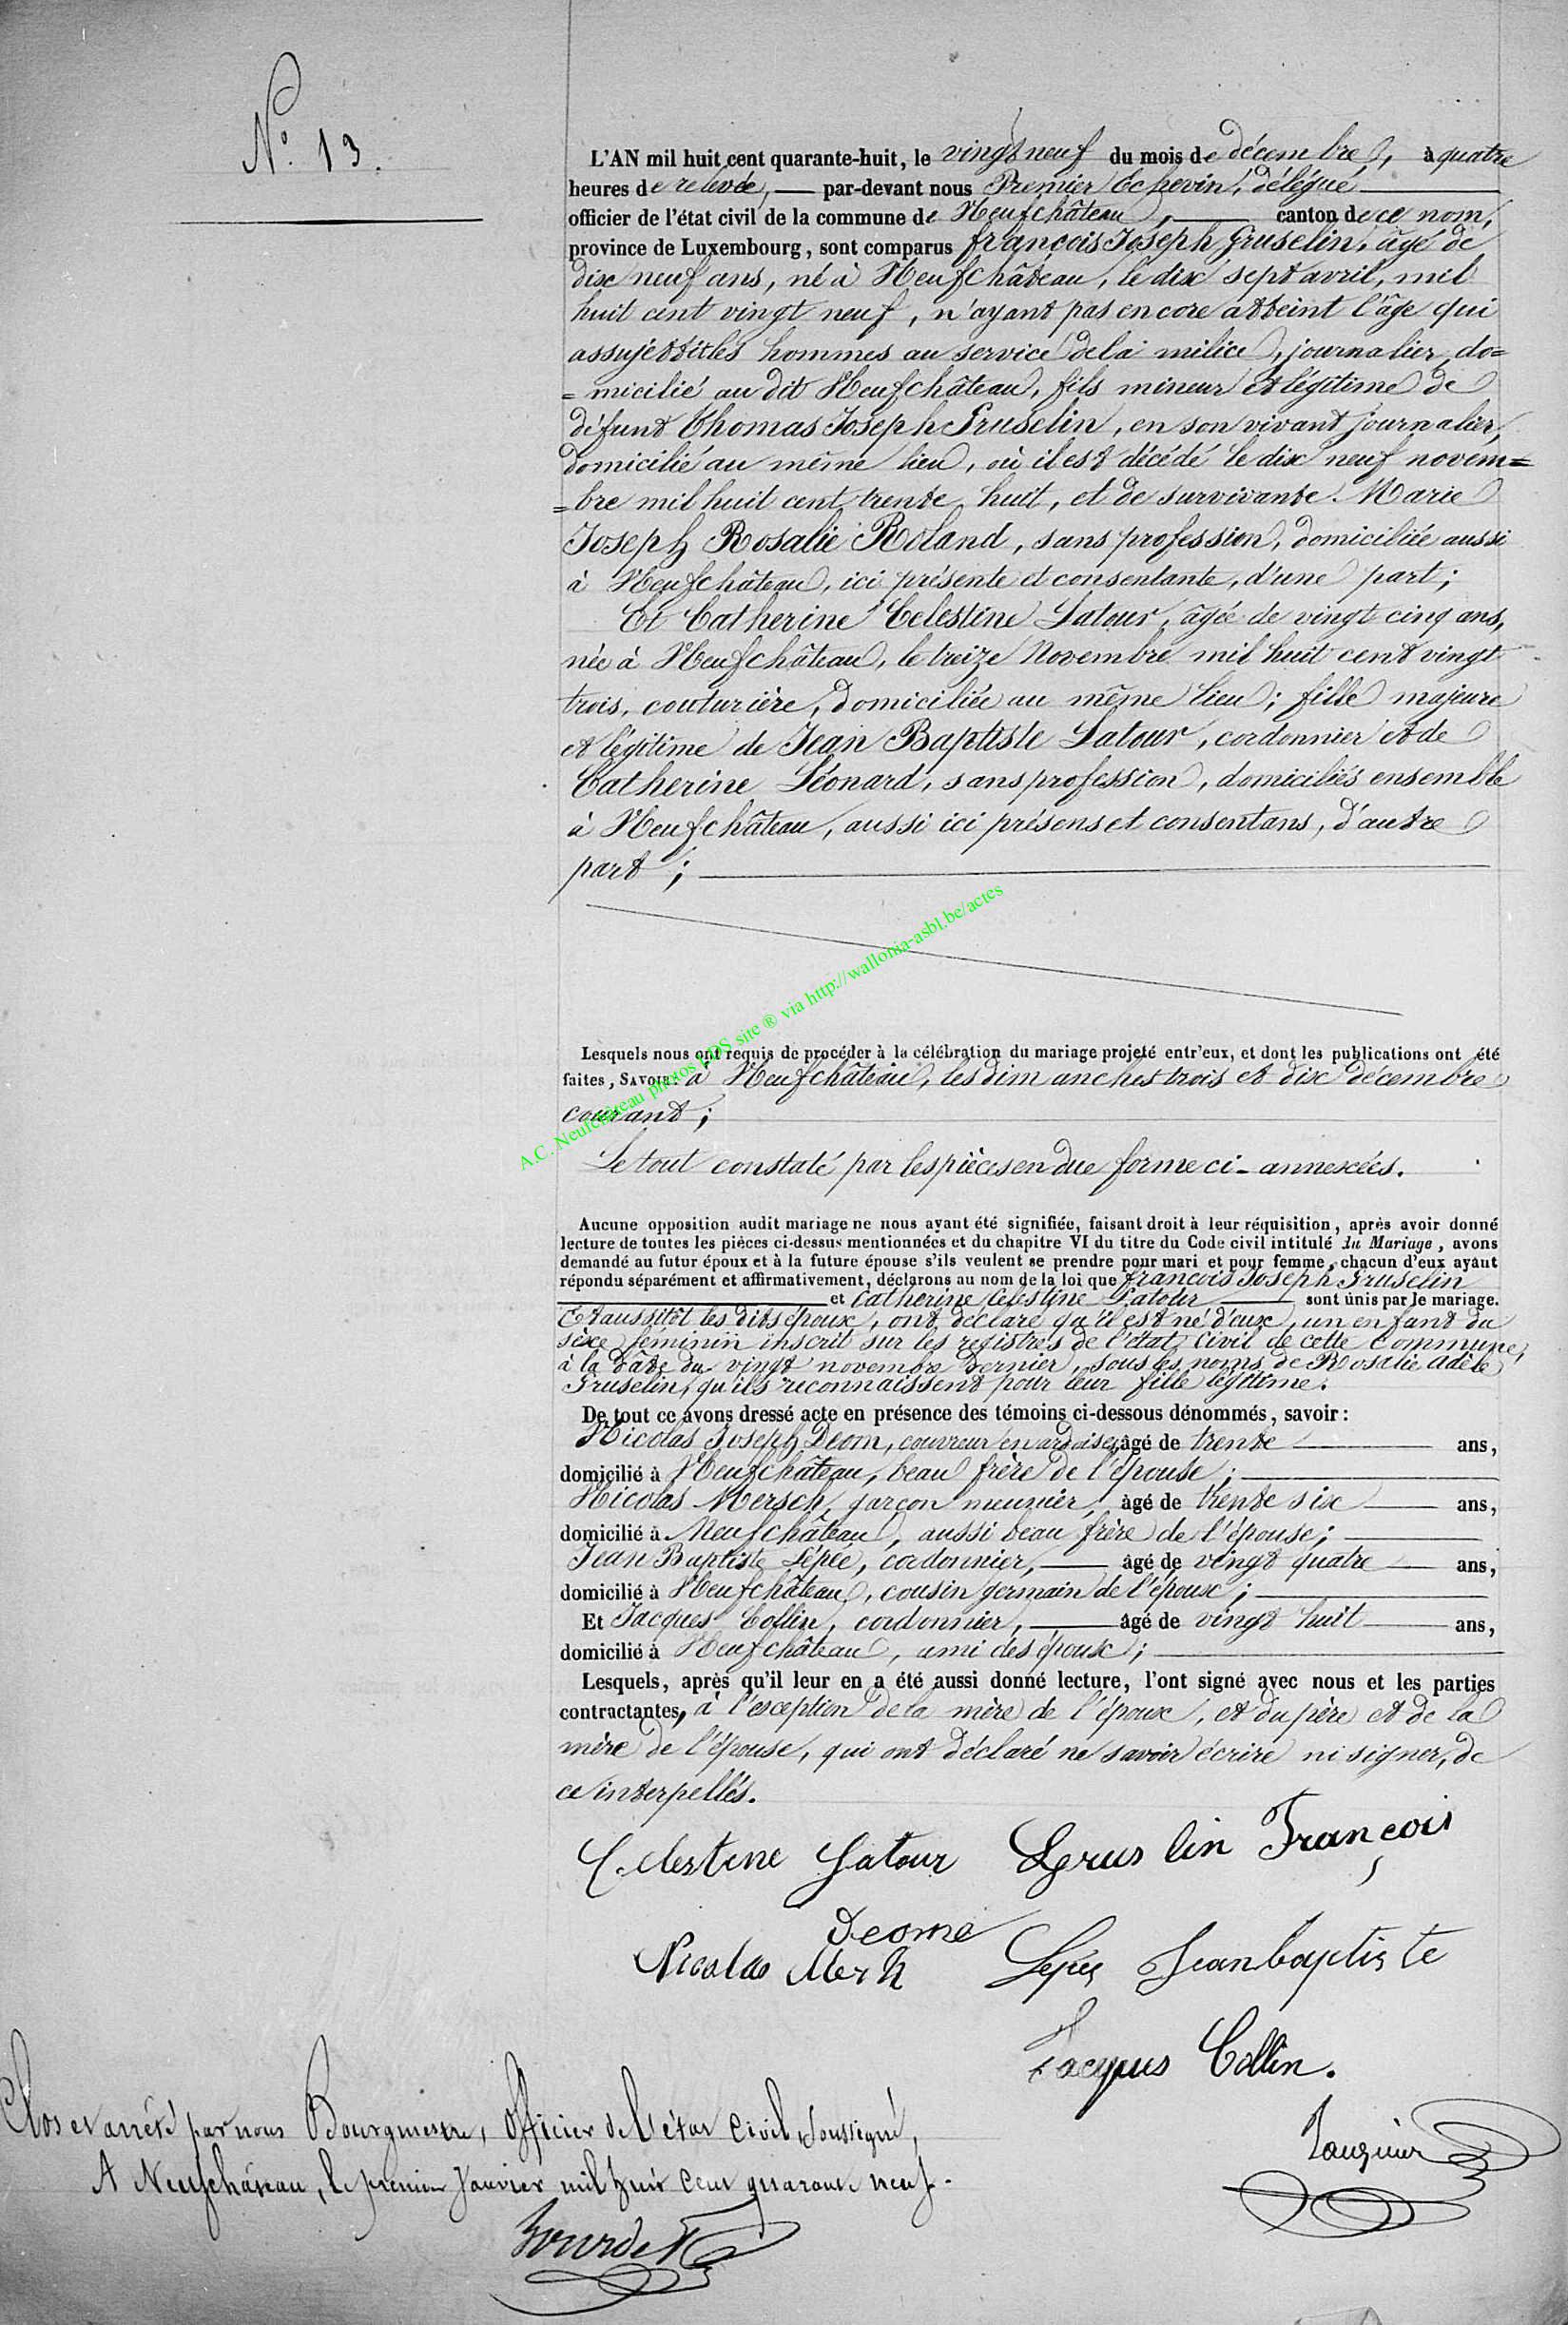 N° 13.
L'AN mil huit cent quarante-huit, le vingt neuf du mois de décembre, à quatre
heures de relevée, par-devant nous Premier Echevin, délégué
officier de l'état civil de la commune de Neufchâteau, canton de ce nom,
province de Luxembourg, sont comparus françois Joseph Gruselin, âgé de
dix neuf ans, né à Neufchâteau, le dix sept avril, mil
huit cent vingt neuf, n'ayant pas encore atteint l'âge qui
assujettit les hommes au service de la milice, journalier, do=
=micilié au dit Neufchâteau, fils mineur et légitime de
défunt Thomas Joseph Gruselin, en son vivant journalier,
domicilié au même lieu, où il est décédé le dix neuf novem=
=bre mil huit cent trente huit, et de survivante Marie
Joseph Rosalie Roland, sans profession, domiciliée aussi
à Neufchâteau, ici présente et consentante, d'une part;
Et Catherine Celestine Latour, âgée de vingt cinq ans,
née à Neufchâteau, le treize Novembre mil huit cent vingt
trois, couturière, domiciliée au même lieu; fille majeure
et légitime de Jean Baptiste Latour, cordonnier et de
Catherine Léonard, sans profession, domiciliés ensemble
à Neufchâteau, aussi ici présens et consentans, d'autre
part;
Lesquels nous ont requis de procéder à la célébration du mariage projeté entr'eux, et dont les publications ont été
faites, SAVOIR: à Neufchâteau, les dimanches trois et dix décembre
courant;
Le tout constaté par les pièces en due forme ci-annexées.
Aucune opposition audit mariage ne nous ayant été signifiée, faisant droit à leur réquisition, après avoir donné
lecture de toutes les pièces ci-dessus mentionnées et du chapitre VI du titre du Code civil intitulé du Mariage, avons
demandé au futur époux et à la future épouse s'ils veulent se prendre pour mari et pour femme, chacun d'eux ayant
répondu séparément et affirmativement, déclarons au nom de la loi que françois Joseph Gruselin
et Catherine Celestine Latour sont unis par le mariage.
Et aussitôt les dits époux, ont déclaré qu'il est né d'eux, un enfant du
sexe feminin inscrit sur les registres de l'état civil de cette Commune,
à la date du vingt novembre dernier, sous les noms de Rosalie adèle
Gruselin, qu'ils reconnaissent pour leur fille légitime.
De tout ce avons dressé acte en présence des témoins ci-dessous dénommés, savoir:
Nicolas Joseph Deom, couvreur en ardoises, âgé de trente ans,
domicilié à Neufchâteau, beau frère de l'épouse;
Nicolas Mersch, garçon meunier, âgé de trente six ans,
domicilié à Neufchâteau, aussi beau frère de l'épouse;
Jean Baptiste Lépée, cordonnier, âgé de vingt quatre ans,
domicilié à Neufchâteau, cousin germain de l'épouse;
Et Jacques Collin, cordonnier, âgé de vingt huit ans,
domicilié à Neufchâteau, ami des époux;
Lesquels, après qu'il leur en a été aussi donné lecture, l'ont signé avec nous et les parties
contractantes, à l'exception de la mère de l'époux, et du père et de la
mère de l'épouse, qui ont déclaré ne savoir écrire ni signer, de
ce interpellés.
Celestine Latour Gruslin François
Deome
Nicolas Merch Lépée Jean baptiste
Jacques Collin.
Clos et arrêté par nous Bourgmestre, Officier de l'état Civil, soussigné,
A Neufchâteau, le premier Janvier mil huit cent quarante neuf.
A.C. Neufchâteau photos LDS site ® via http://wallonia-asbl.be/actes